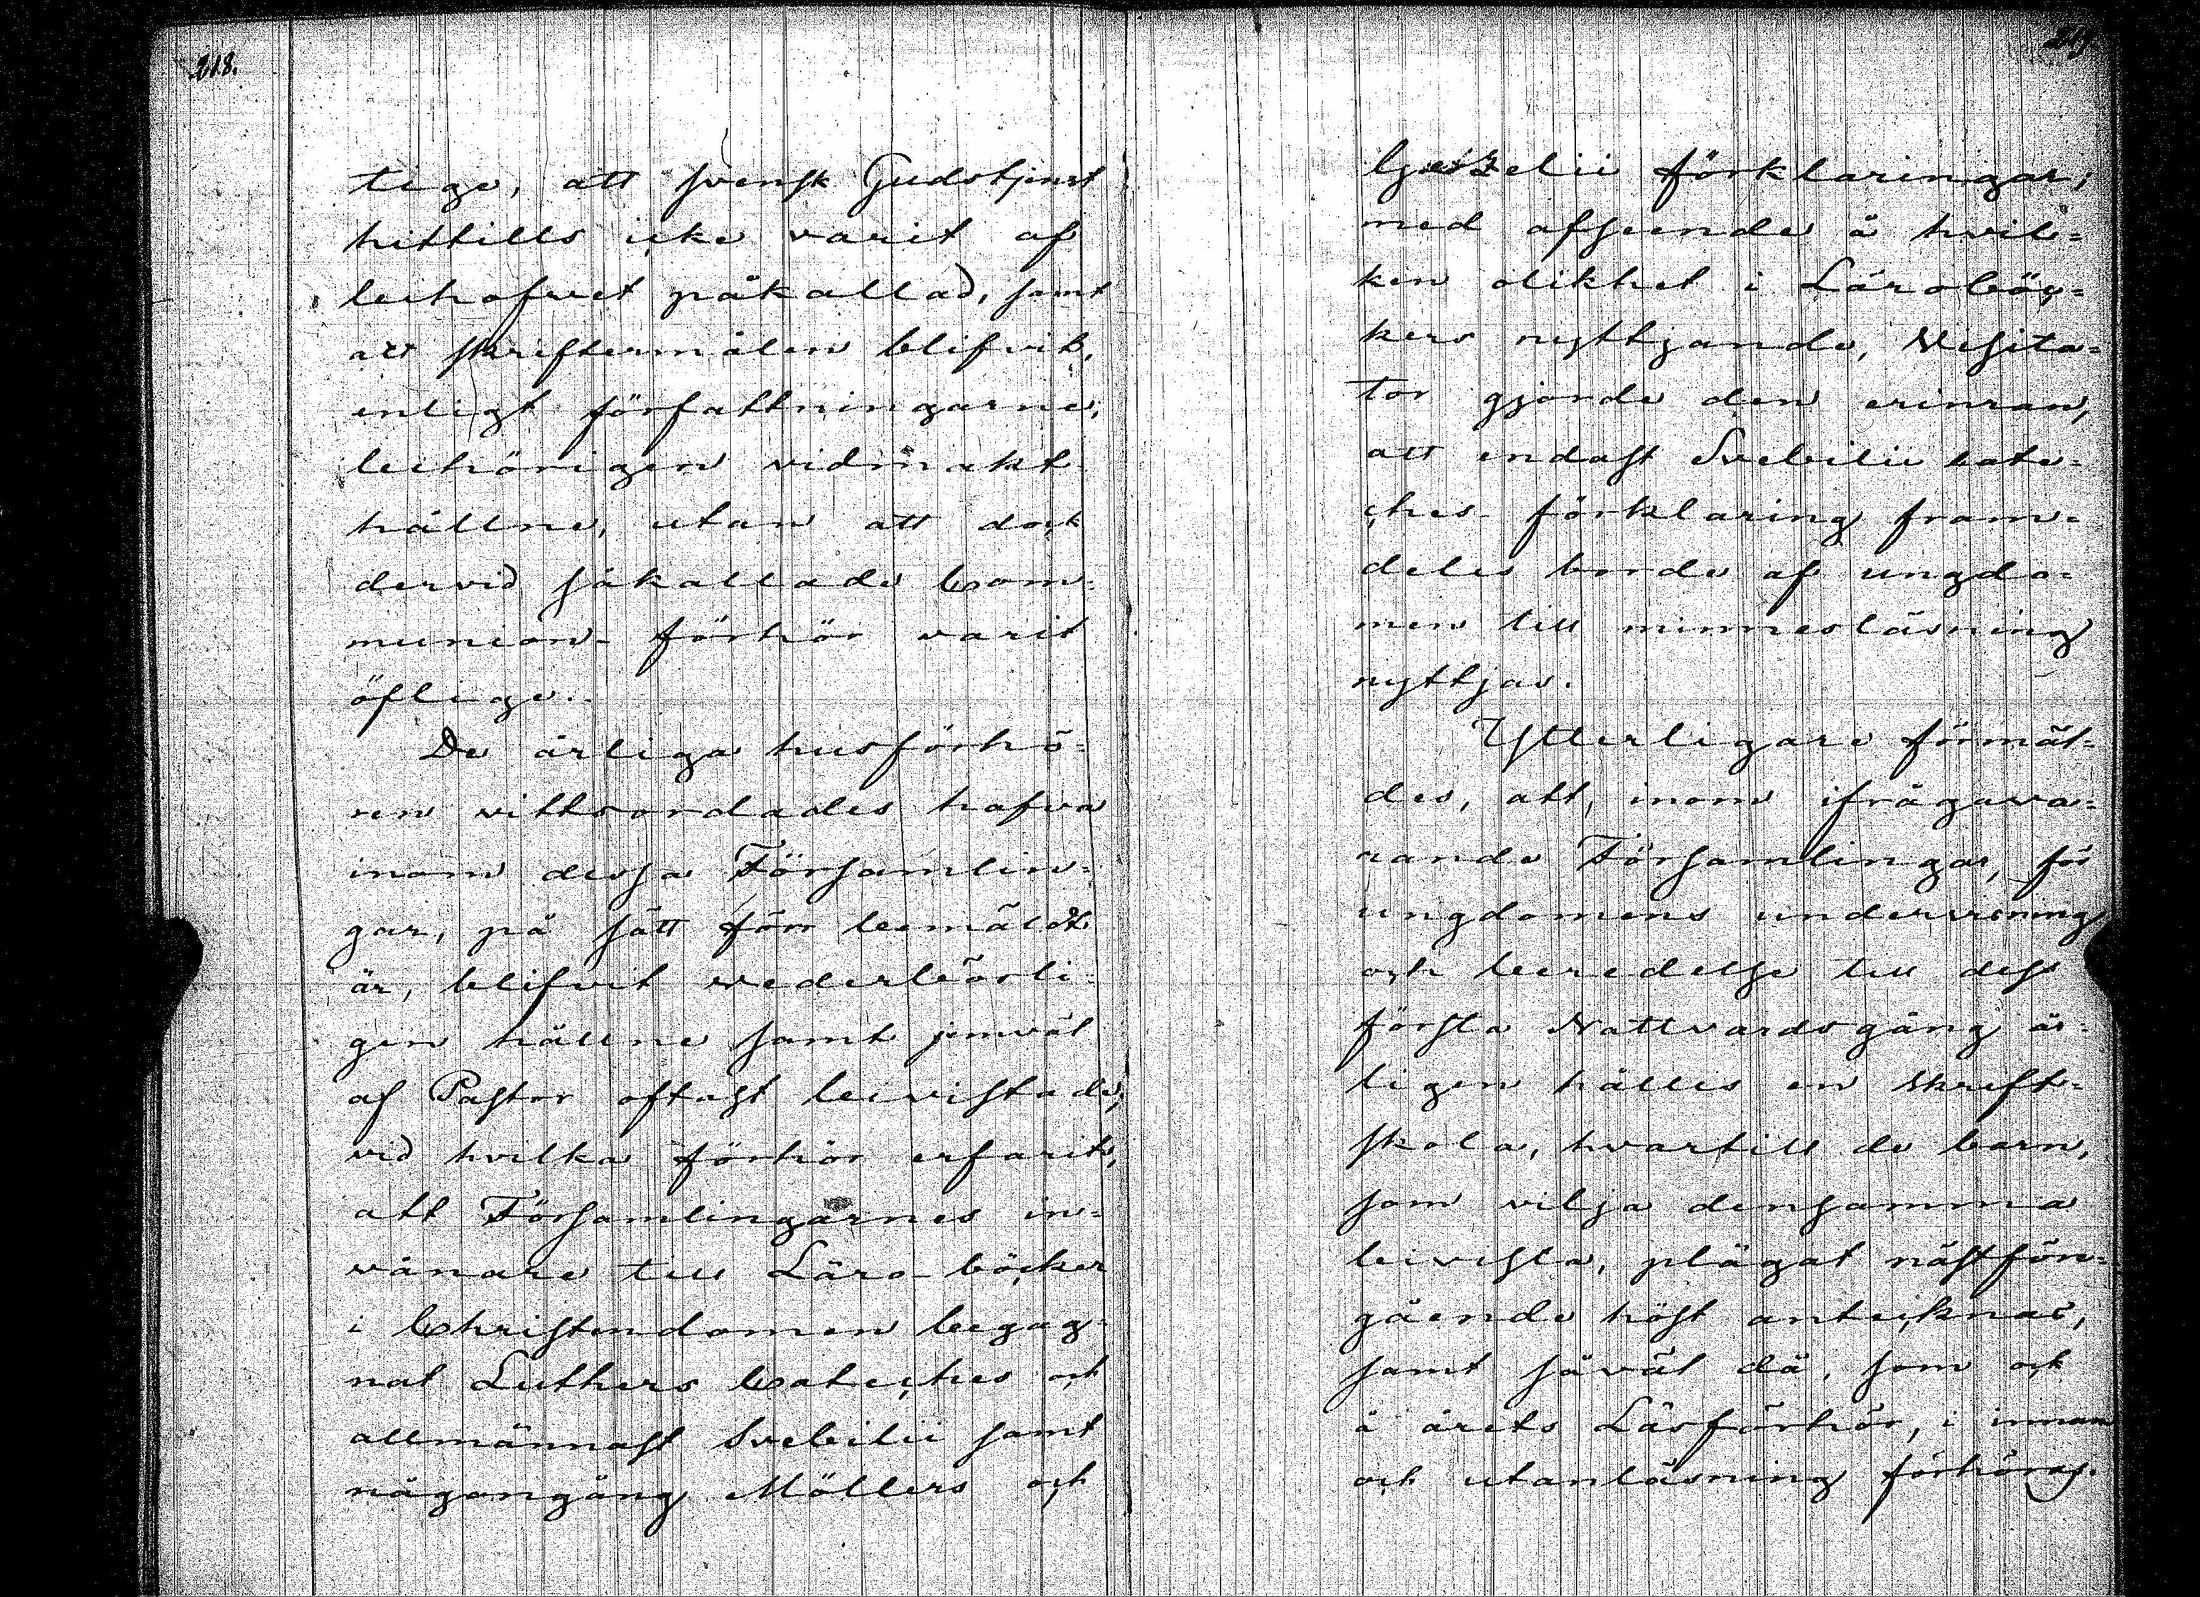 218.
tige, att svensk Gudstjenst
hittills icke varit af
behofvet påkallad, samt
att skriftermålen blifvit,
enligt författningarne,
behörigen vidmakt-
hållne, utan att dock
dervid såkallade Com=
munion- förhör varit
öflige.
De årliga husförhö=
ren vittsordades hafva
inom dessa Församlin=
gar, på sätt förr bemäldt
är, blifvit vederbörli=
gen hållne samt jemväl
af Pastor oftast bevistade,
vid hvilka förhör erfarits,
att Församlingarnes in=
vånare till Läro-böcker
i Christendomen begag=
nat Luthers Cateches och
allmännast Svebilii samt
någongång Möllers och
219.
Gezelii förklaringar;
med afseende å hvil=
ken olikhet i Läroböc=
kers nyttjande, Visita=
tor gjorde den erinran,
att endast Svebilii kate=
ches- förklaring fram=
deles borde af ungdo=
men till minnesläsning
nyttjas.
Ytterligare förmäl=
des, att, inom ifrågava=
rande Församlingar, för
ungdomens undervisning
och beredelse till dess
första Nattvardsgång år=
ligen hålles en skrift=
skola, hvartill de barn,
som vilja densamma
bevista, plägat nästför=
gående höst antecknas,
samt såväl då, som ock
å årets Läsförhör, i innan
och utanläsning förhöras.